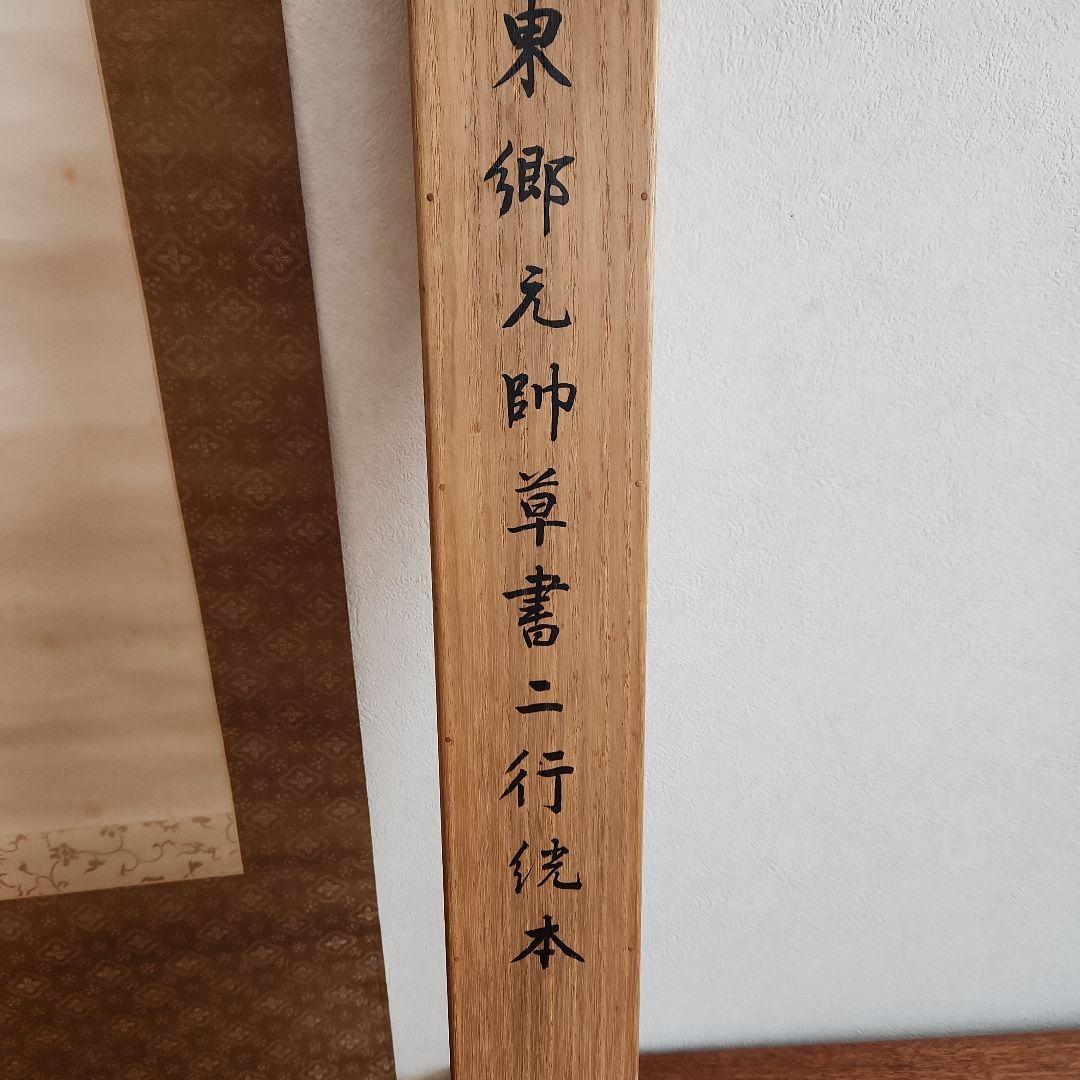 東郷元帥草書二行絖本